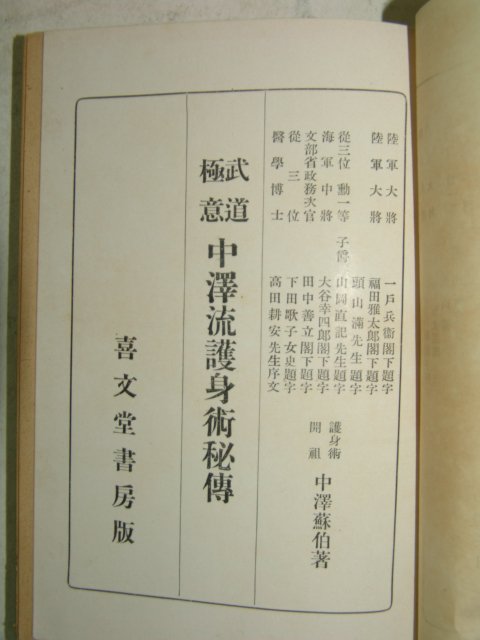 陸軍大將 一戶兵衞閣下題字
陸軍大將 福田雅太郎閣下題字
頭山滿先生題字
從三位勳一等子爵 山岡直記先生題字
海軍中將 大谷幸四郎閣下題字
文部省政務次官 田中善立閣下題字
從三位 下田歌子女史題字
醫學博士 高田耕安先生序文
護身術開祖 中澤蘇伯著
武道極意 中澤流護身術秘傳
喜文堂書房版